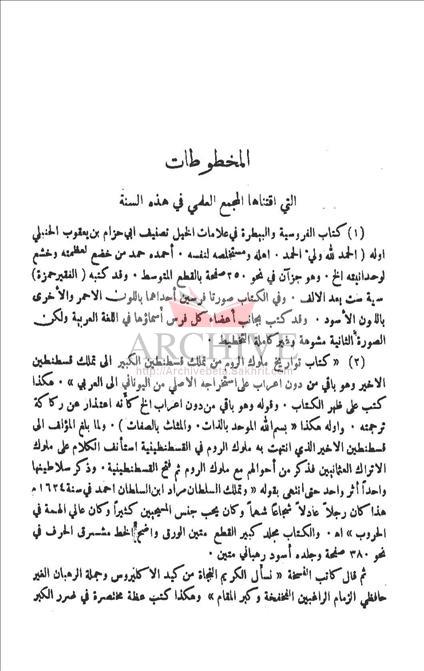 المخطوطات
التي اقتناها المجمع العلمي في هذه السنة
(١) كتاب الفروسية والبيطرة في علامات الخيل تصنيف ابي حزام بن يعقوب الحنبلي
اوله ( الحمد لله ولي الحمد . اهله ومستخلصه لنفسه . أحمده حمد من خضع لعظمته وخشع
لوحدانيته الخ . وهو جزآن في نحو ٢٥٠ صفحة بالقطع المتوسط . وقد كتبه ( الفقير حمزة )
سنة ست بعد الالف . وفي الكتاب صورتا فرسين احداهما باللون الاحمر والأخرى
باللون الأسود . وقد كتب بجانب أعضاء كل فرس أسماؤها في اللغة العربية ولكن
الصورة الثانية مشوهة وغير كاملة التخطيط .
ARCHIVE
http://Archivebeta.Sakhrit.com
(٢) « كتاب تواريخ ملوك الروم من تملك قسطنطين الكبير الى تملك قسطنطين
الاخير وهو باقي من دون اعراب على استخراجه الاصلي من اليوناني الى العربي » . هكذا
كتب على ظهر الكتاب . وقوله وهو باقي من دون اعراب الخ كأنه اعتذار عن ركاكة
ترجمته . واوله هكذا « بسم الله الموحد بالذات . والمثلث بالصفات ) . ولما بلغ المؤلف الى
قسطنطين الاخير الذي انتهت به ملوك الروم في القسطنطينية استأنف الكلام على ملوك
الاتراك العثمانيين فذكر من أحوالهم مع ملوك الروم ثم فتح القسطنطينية . وذكر سلاطينها
واحداً أثر واحد حتى انتهى بقوله « وتملك السلطان مراد ابن السلطان احمد في سنة ١٦٢٤م
هذا كان رجلاً عادلاً شجاعاً شهماً وكان يحب جنس المسيحيين كثيراً وكان عالي الهمة في
الحروب » اه . والكتاب مجلد كبير القطع متين الورق واضح الخط مشرق الحرف في
نحو ٣٨٠ صفحة وجلده أسود رهباني متين .
ثم قال كاتب النسخة « نسأل الكريم النجاة من كيد الاكليروس وحملة الرهبان الغير
حافظي الزمام الراغبين النخفخة وكبر المقام » وهكذا كتب عظة مختصرة في ضرر الكبر